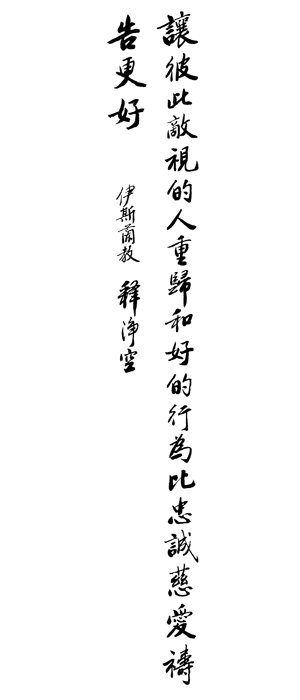 讓彼此敵視的人重歸和好的行為比忠誠慈愛禱
告更好
伊斯蘭教 釋淨空